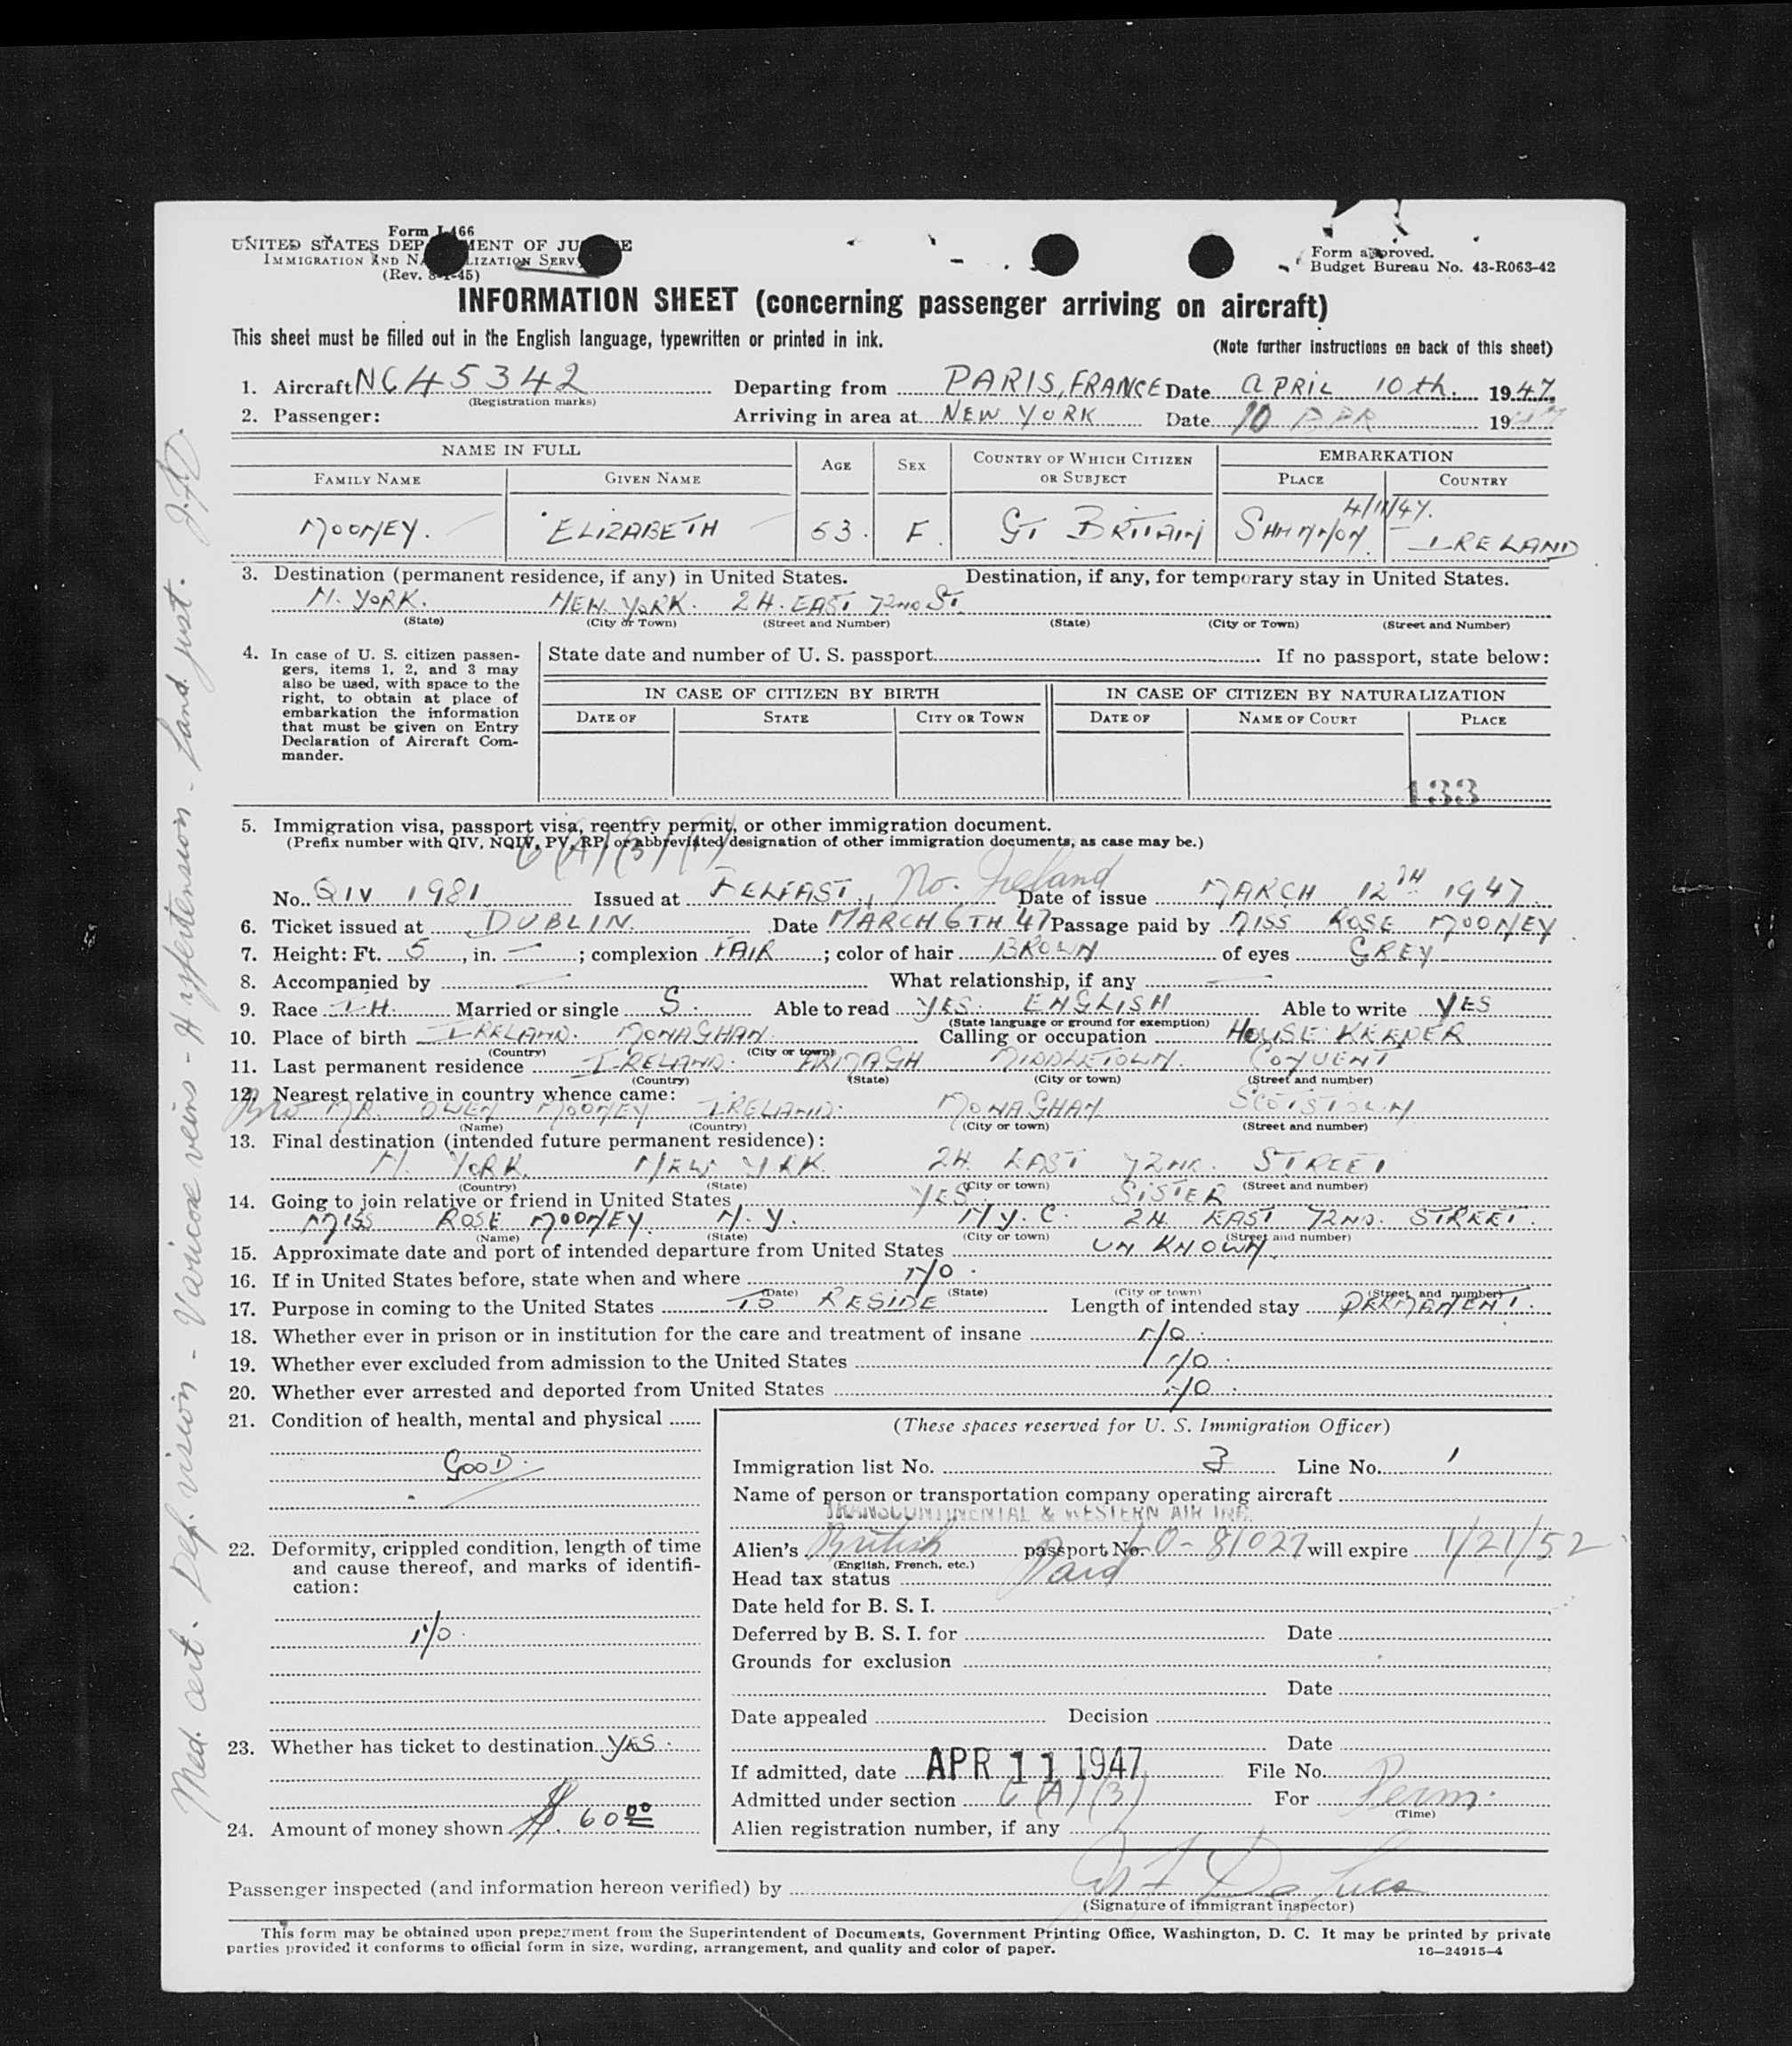 Form I-466
UNITED STATES DEPARTMENT OF JUSTICE
IMMIGRATION AND NATURALIZATION SERVICE
(Rev. 8-1-45)
Form approved.
Budget Bureau No. 43-R063-42
INFORMATION SHEET (concerning passenger arriving on aircraft)
This sheet must be filled out in the English language, typewritten or printed in ink.
(Note further instructions on back of this sheet)
1. Aircraft NC45342 Departing from PARIS, FRANCE Date APRIL 10th. 1947.
(Registration marks)
2. Passenger: Arriving in area at NEW YORK Date 10 APR 1947
NAME IN FULL AGE SEX COUNTRY OF WHICH CITIZEN OR SUBJECT EMBARKATION
FAMILY NAME GIVEN NAME PLACE COUNTRY
4/11/47.
MOONEY. ELIZABETH 53. F. GT BRITAIN SHANNON IRELAND
3. Destination (permanent residence, if any) in United States. Destination, if any, for temporary stay in United States.
N. YORK. NEW YORK. 24. EAST 72ND ST.
(State) (City or Town) (Street and Number) (State) (City or Town) (Street and Number)
4. In case of U. S. citizen passen-
gers, items 1, 2, and 3 may
also be used, with space to the
right, to obtain at place of
embarkation the information
that must be given on Entry
Declaration of Aircraft Com-
mander.
State date and number of U. S. passport If no passport, state below:
IN CASE OF CITIZEN BY BIRTH IN CASE OF CITIZEN BY NATURALIZATION
DATE OF STATE CITY OR TOWN DATE OF NAME OF COURT PLACE
133
5. Immigration visa, passport visa, reentry permit, or other immigration document.
(Prefix number with QIV, NQIV, PV, RP, or abbreviated designation of other immigration documents, as case may be.)
6(A)(3)
No. QIV 1981 Issued at BELFAST, No. Ireland Date of issue MARCH 12TH 1947
6. Ticket issued at DUBLIN. Date MARCH 6TH 47 Passage paid by MISS ROSE MOONEY
7. Height: Ft. 5, in. —; complexion FAIR; color of hair BROWN of eyes GREY
8. Accompanied by — What relationship, if any —
9. Race IH. Married or single S. Able to read YES. ENGLISH Able to write YES
(State language or ground for exemption)
10. Place of birth IRELAND. MONAGHAN. Calling or occupation HOUSE KEEPER
(Country) (City or town)
11. Last permanent residence IRELAND. ARMAGH MIDDLETOWN. CONVENT
(Country) (State) (City or town) (Street and number)
12. Nearest relative in country whence came:
Bro MR. OWEN MOONEY IRELAND. MONAGHAN SCOTSTOWN
(Name) (Country) (City or town) (Street and number)
13. Final destination (intended future permanent residence):
N. YORK. NEW YORK 24 EAST 72ND. STREET
(Country) (State) (City or town) (Street and number)
14. Going to join relative or friend in United States YES SISTER
MISS ROSE MOONEY. N.Y. N.Y.C. 24 EAST 72ND. STREET.
(Name) (State) (City or town) (Street and number)
15. Approximate date and port of intended departure from United States UNKNOWN.
16. If in United States before, state when and where NO.
(Date) (State) (City or town) (Street and number)
17. Purpose in coming to the United States TO RESIDE Length of intended stay PERMANENT.
18. Whether ever in prison or in institution for the care and treatment of insane NO.
19. Whether ever excluded from admission to the United States NO.
20. Whether ever arrested and deported from United States NO.
21. Condition of health, mental and physical
GOOD.
22. Deformity, crippled condition, length of time
and cause thereof, and marks of identifi-
cation:
NO.
23. Whether has ticket to destination YES.
24. Amount of money shown $. 60 00
(These spaces reserved for U. S. Immigration Officer)
Immigration list No. 3 Line No. 1
Name of person or transportation company operating aircraft
TRANSCONTINENTAL & WESTERN AIR INC.
Alien's British passport No. 0-81027 will expire 1/21/52
(English, French, etc.)
Head tax status Paid
Date held for B. S. I.
Deferred by B. S. I. for Date
Grounds for exclusion
Date
Date appealed Decision
Date
If admitted, date APR 11 1947 File No.
Admitted under section 6(A)(3) For Perm.
(Time)
Alien registration number, if any
Passenger inspected (and information hereon verified) by
(Signature of immigrant inspector)
This form may be obtained upon prepayment from the Superintendent of Documents, Government Printing Office, Washington, D. C. It may be printed by private
parties provided it conforms to official form in size, wording, arrangement, and quality and color of paper.
16—24915-4
Med. cert. - Def. vision - Varicose veins - Hypertension - Land. just.